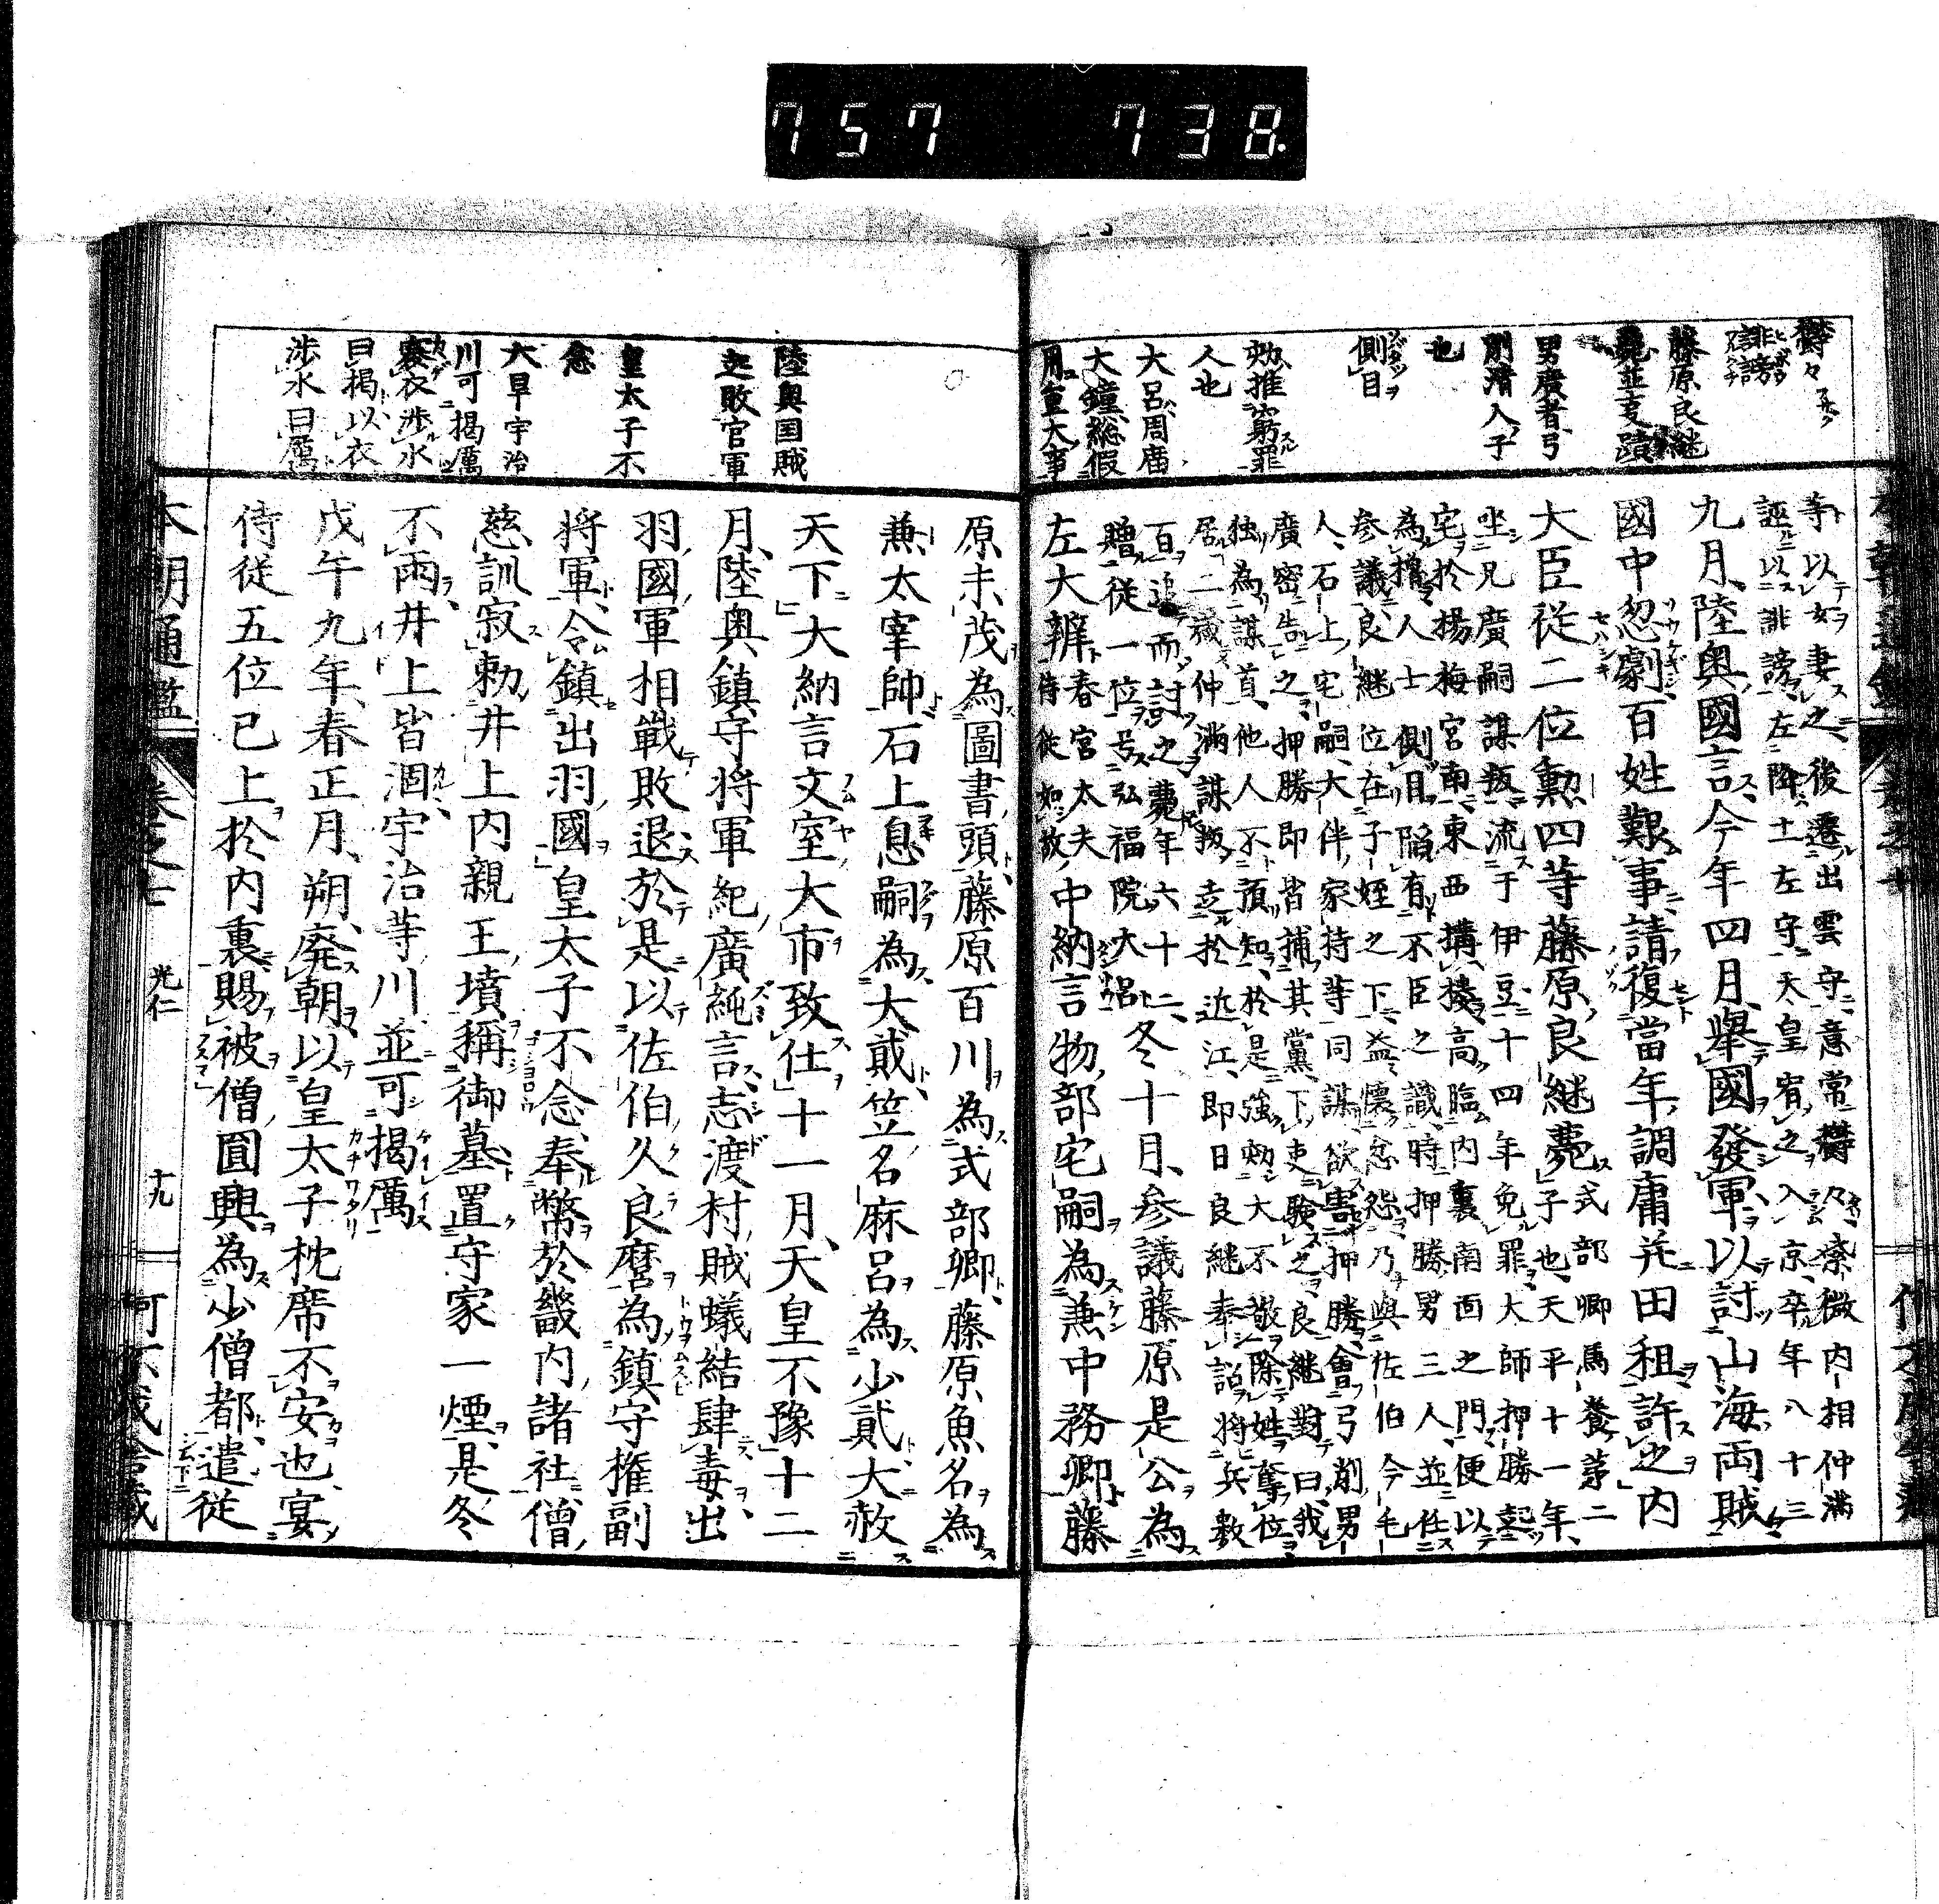 757 738.
欝々
誹謗
藤原良継
薨並事蹟
男廣者弓
削清人子
也
側目
勅推窮罪
人也
大呂周庿
大鐘総假
用重大事
等以女妻之後遷出雲守意常欝々紫微内相仲満
誣以誹謗左降土左守天皇宥之入京卒年八十三
九月陸奥國言今年四月舉國發軍以討山海両賊
國中忽劇百姓艱事請復當年調庸并田租許之内
大臣従二位勲四等藤原良継薨
式部卿馬養第二
子也天平十一年
坐兄廣嗣謀叛流于伊豆十四年免罪大師押勝起
宅於楊梅宮南東西搆楼高臨内裏南面之門便以
為櫓人士側目陷有不臣之譏時押勝男三人並任
参議良継位在子姪之下益懐忿怨乃與佐伯今毛
人石上宅嗣大伴家持等同謀欲害押勝會弓削男
廣密告之押勝即皆捕其黨下吏験之良継對曰我
独為謀首他人不預知於是強勅大不敬除姓奪位
居二歳仲満謀叛走於近江即日良継奉詔将兵數
百追而討之薨年六十二
贈従一位号弘福院大侶
冬十月参議藤原是公為
左大辨春宮太夫
侍従如故
中納言物部宅嗣為兼中務卿藤
陸奥国賊
之敗官軍
皇太子不
悆
大旱宇治
川可揭厲
褰衣渉水
曰揭以衣
渉水曰厲
原末茂為圖書頭藤原百川為式部卿藤原魚名為
兼太宰帥石上息嗣為大貮笠名麻呂為少貳大赦
天下大納言文室大市致仕十一月天皇不豫十二
月陸奥鎮守将軍紀廣純言志渡村賊蟻結肆毒出
羽國軍相戰敗退於是以佐伯久良麿為鎮守権副
将軍令鎮出羽國皇太子不悆奉幣於畿内諸社僧
慈訓寂勅井上内親王墳稱御墓置守家一煙是冬
不雨井上皆涸宇治等川並可揭厲
戊午九年春正月朔廃朝以皇太子枕席不安也宴
侍従五位已上於内裏賜被僧圓興為少僧都遣従
本朝通鑑
巻之十
光仁
十九